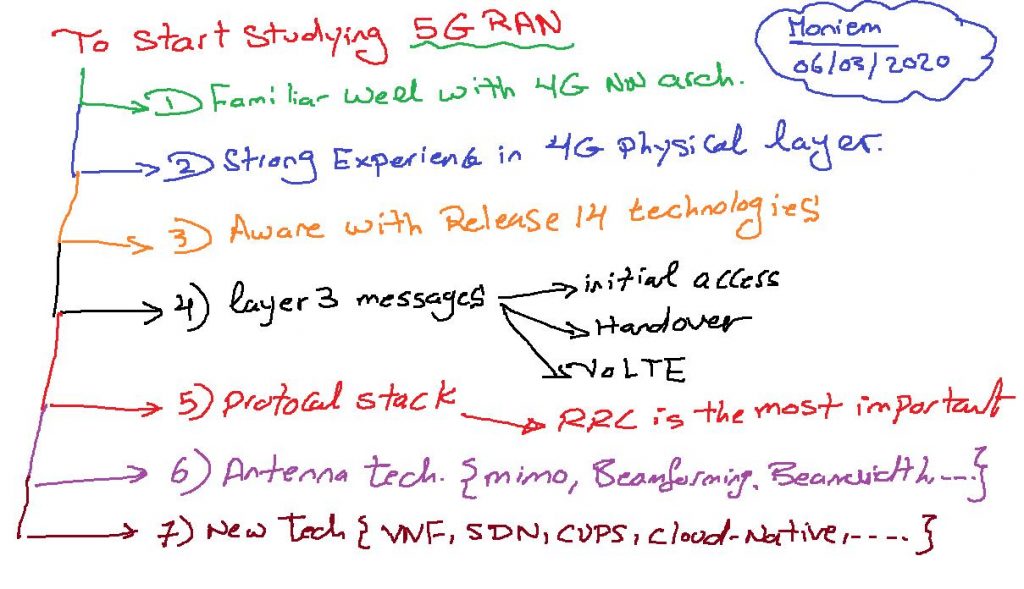 To start studying 5G RAN
Moniem
06/03/2020
1) Familiar well with 4G NW arch.
2) Strong Experience in 4G physical layer.
3) Aware with Release 14 technologies
4) layer 3 messages
initial access
Handover
VoLTE
5) Protocal stack
RRC is the most important
6) Antenna tech. {mimo, Beamforming, Beamwidth, ....}
7) New Tech { VNF, SDN, CUPS, Cloud-Native, ..... }